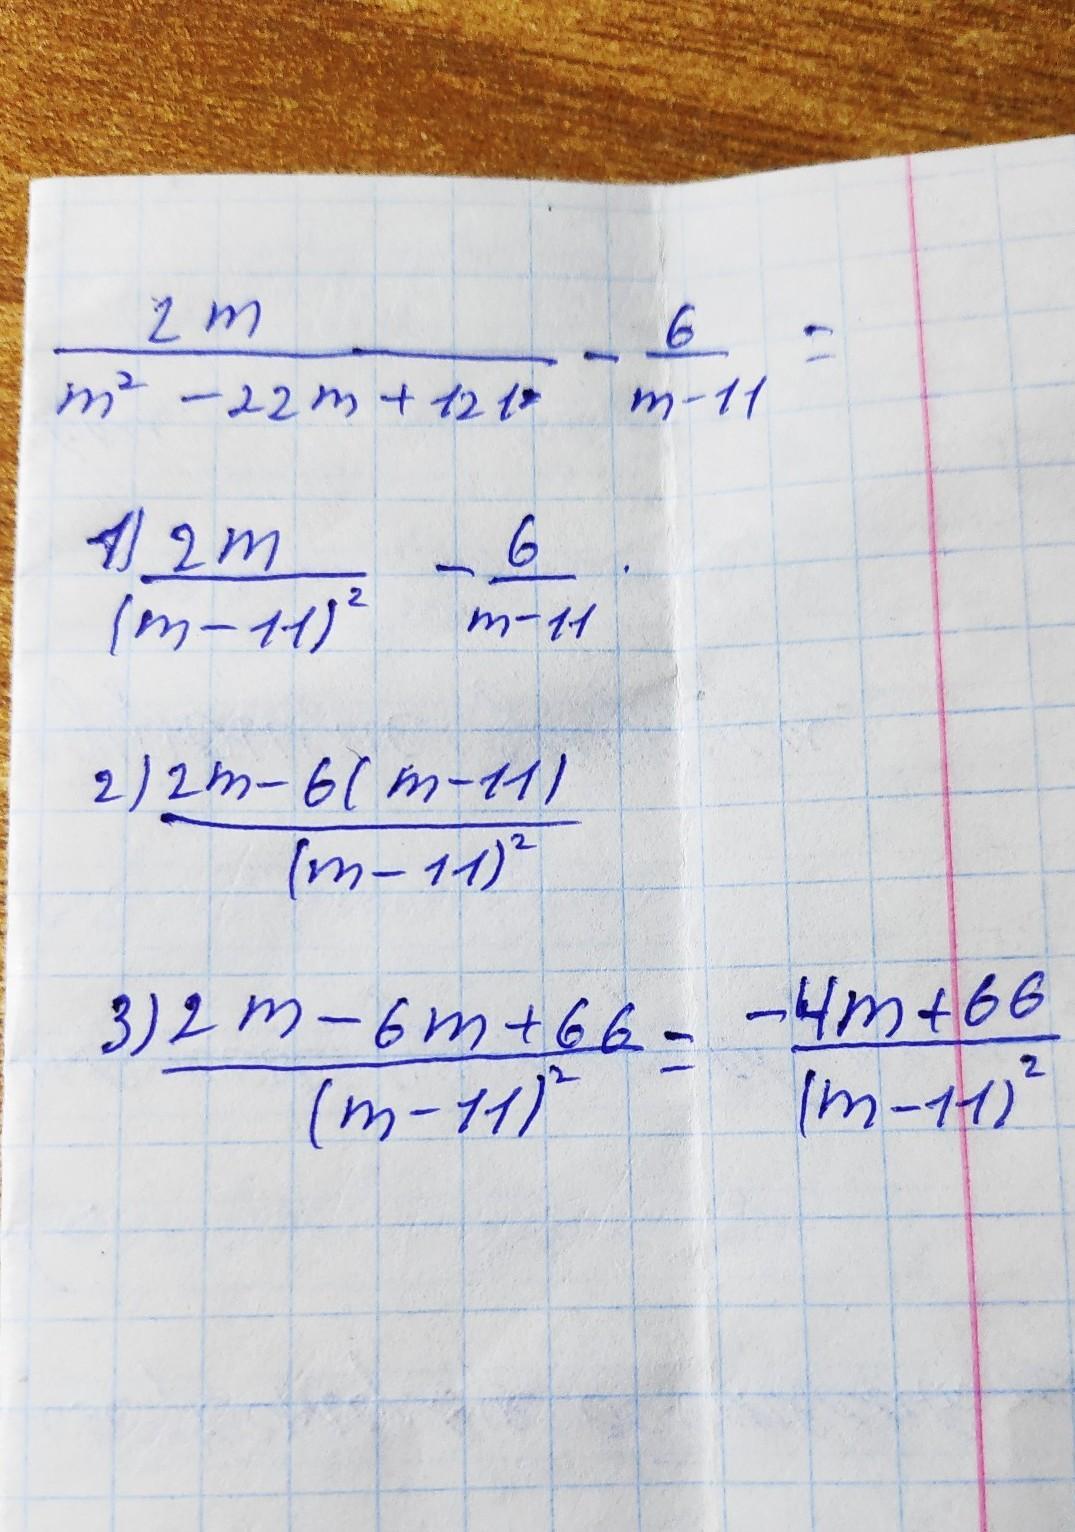 2m / m² - 22m + 121 - 6 / m-11 =
1) 2m / (m-11)² - 6 / m-11 .
2) 2m - 6(m-11) / (m-11)²
3) 2m - 6m + 66 / (m-11)² = -4m + 66 / (m-11)²